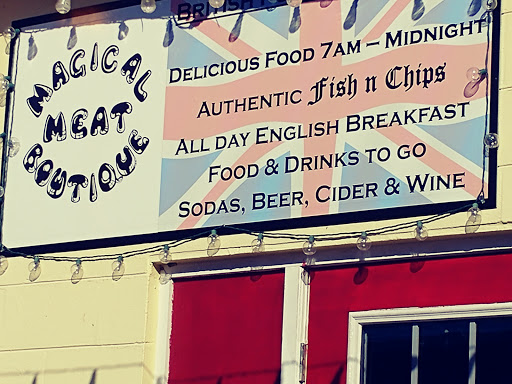 MAGICAL
MEAT
BOUTIQUE
BRITISH
DELICIOUS FOOD 7AM – MIDNIGHT
AUTHENTIC Fish n Chips
ALL DAY ENGLISH BREAKFAST
FOOD & DRINKS TO GO
SODAS, BEER, CIDER & WINE